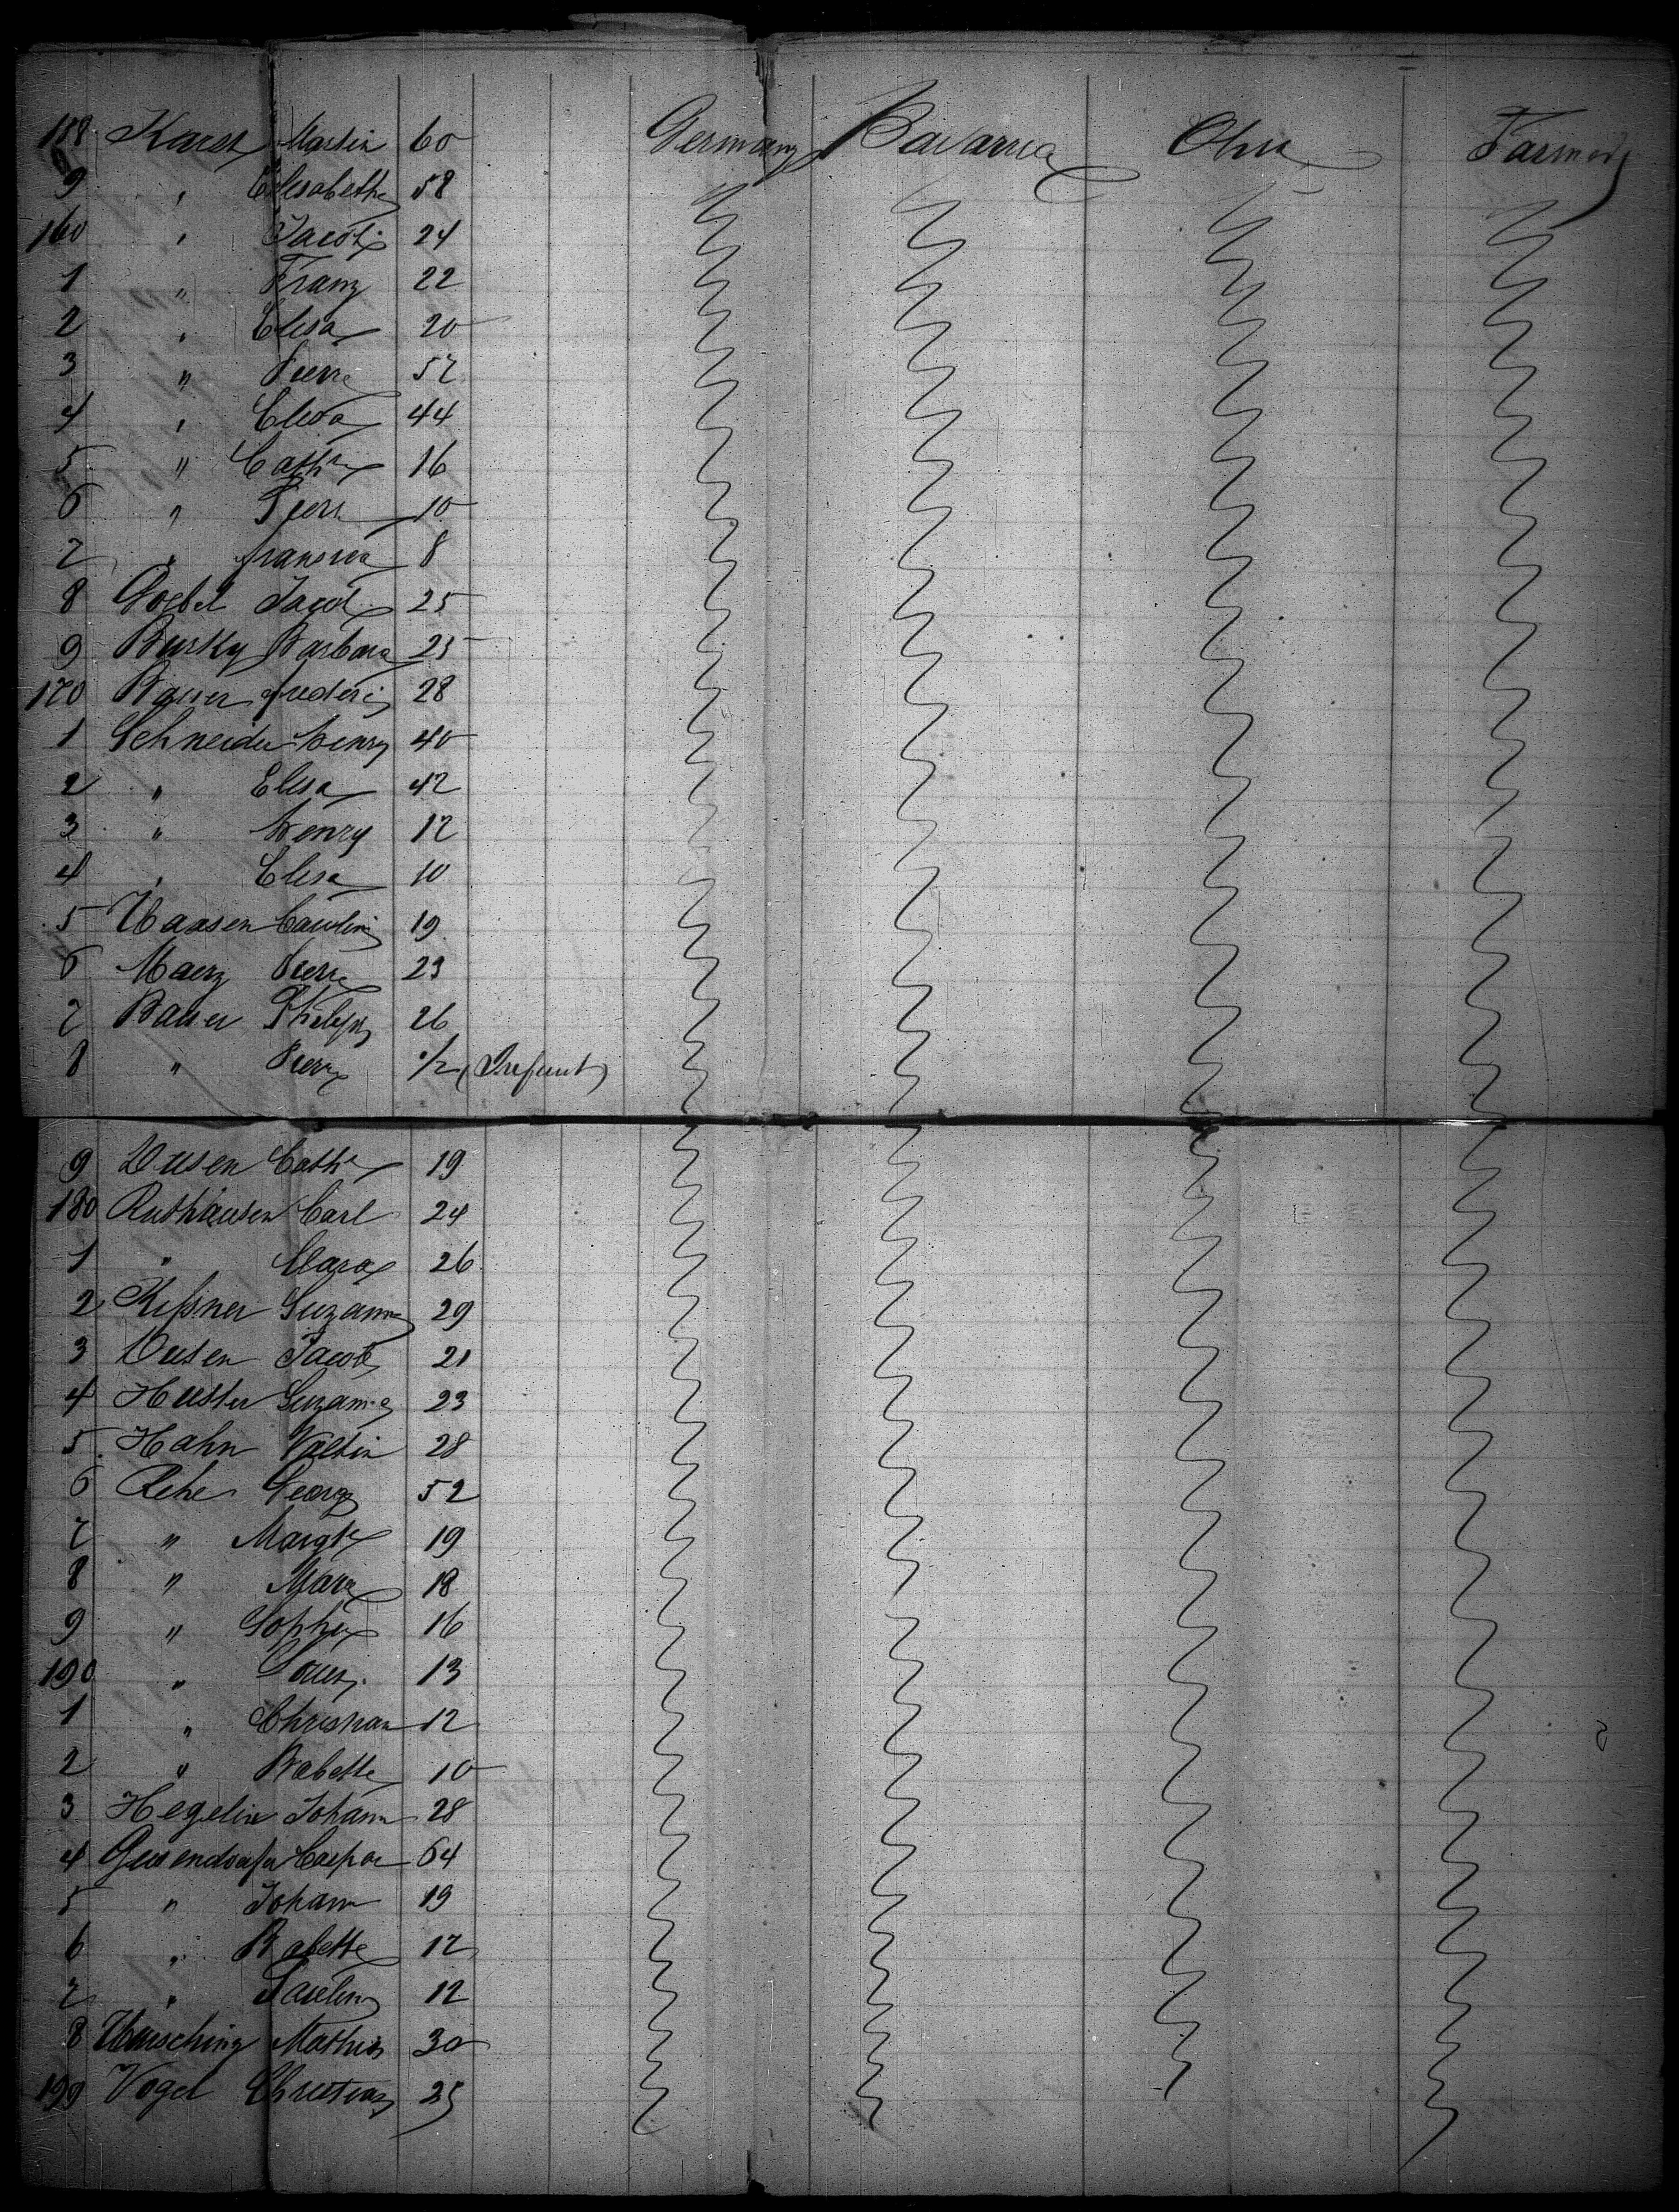 188 Karst Martin 60 Germany Bavarria Ohio Farmer
9 " Elisabetha 58
160 " Jacob 24
1 " Franz 22
2 " Elisa 20
3 " Pierre 52
4 " Elisa 44
5 " Cathe 16
6 " Pierre 10
7 " 8
8 Goebel Jacob 25
9 Bursky Barbara 25
170 Bauer frederic 28
1 Schneider henry 40
2 " Elisa 42
3 " henry 12
4 " Elisa 10
5 Haasen Carolin 19
6 Maerz Pierre 23
7 Bauer Philipp 26
8 " Pierre 1/2 (Infant)
9 Susen Cathe 19
180 Ruthausen Carl 24
1 " Clara 26
2 Kissner Suzanne 29
3 Susen Jacob 21
4 Huster Suzanne 23
5 Hahn Valtin 28
6 Rehe Georg 52
7 " Margte 19
8 " Maria 18
9 " Sophie 16
190 " Louis 13
1 " Christian 12
2 " Babette 10
3 Hegelin Johann 28
4 Geisendorfer Caspar 64
5 " Johann 19
6 " Babette 12
7 " Paulin 12
8 Mathis 30
199 Vogel Christian 25